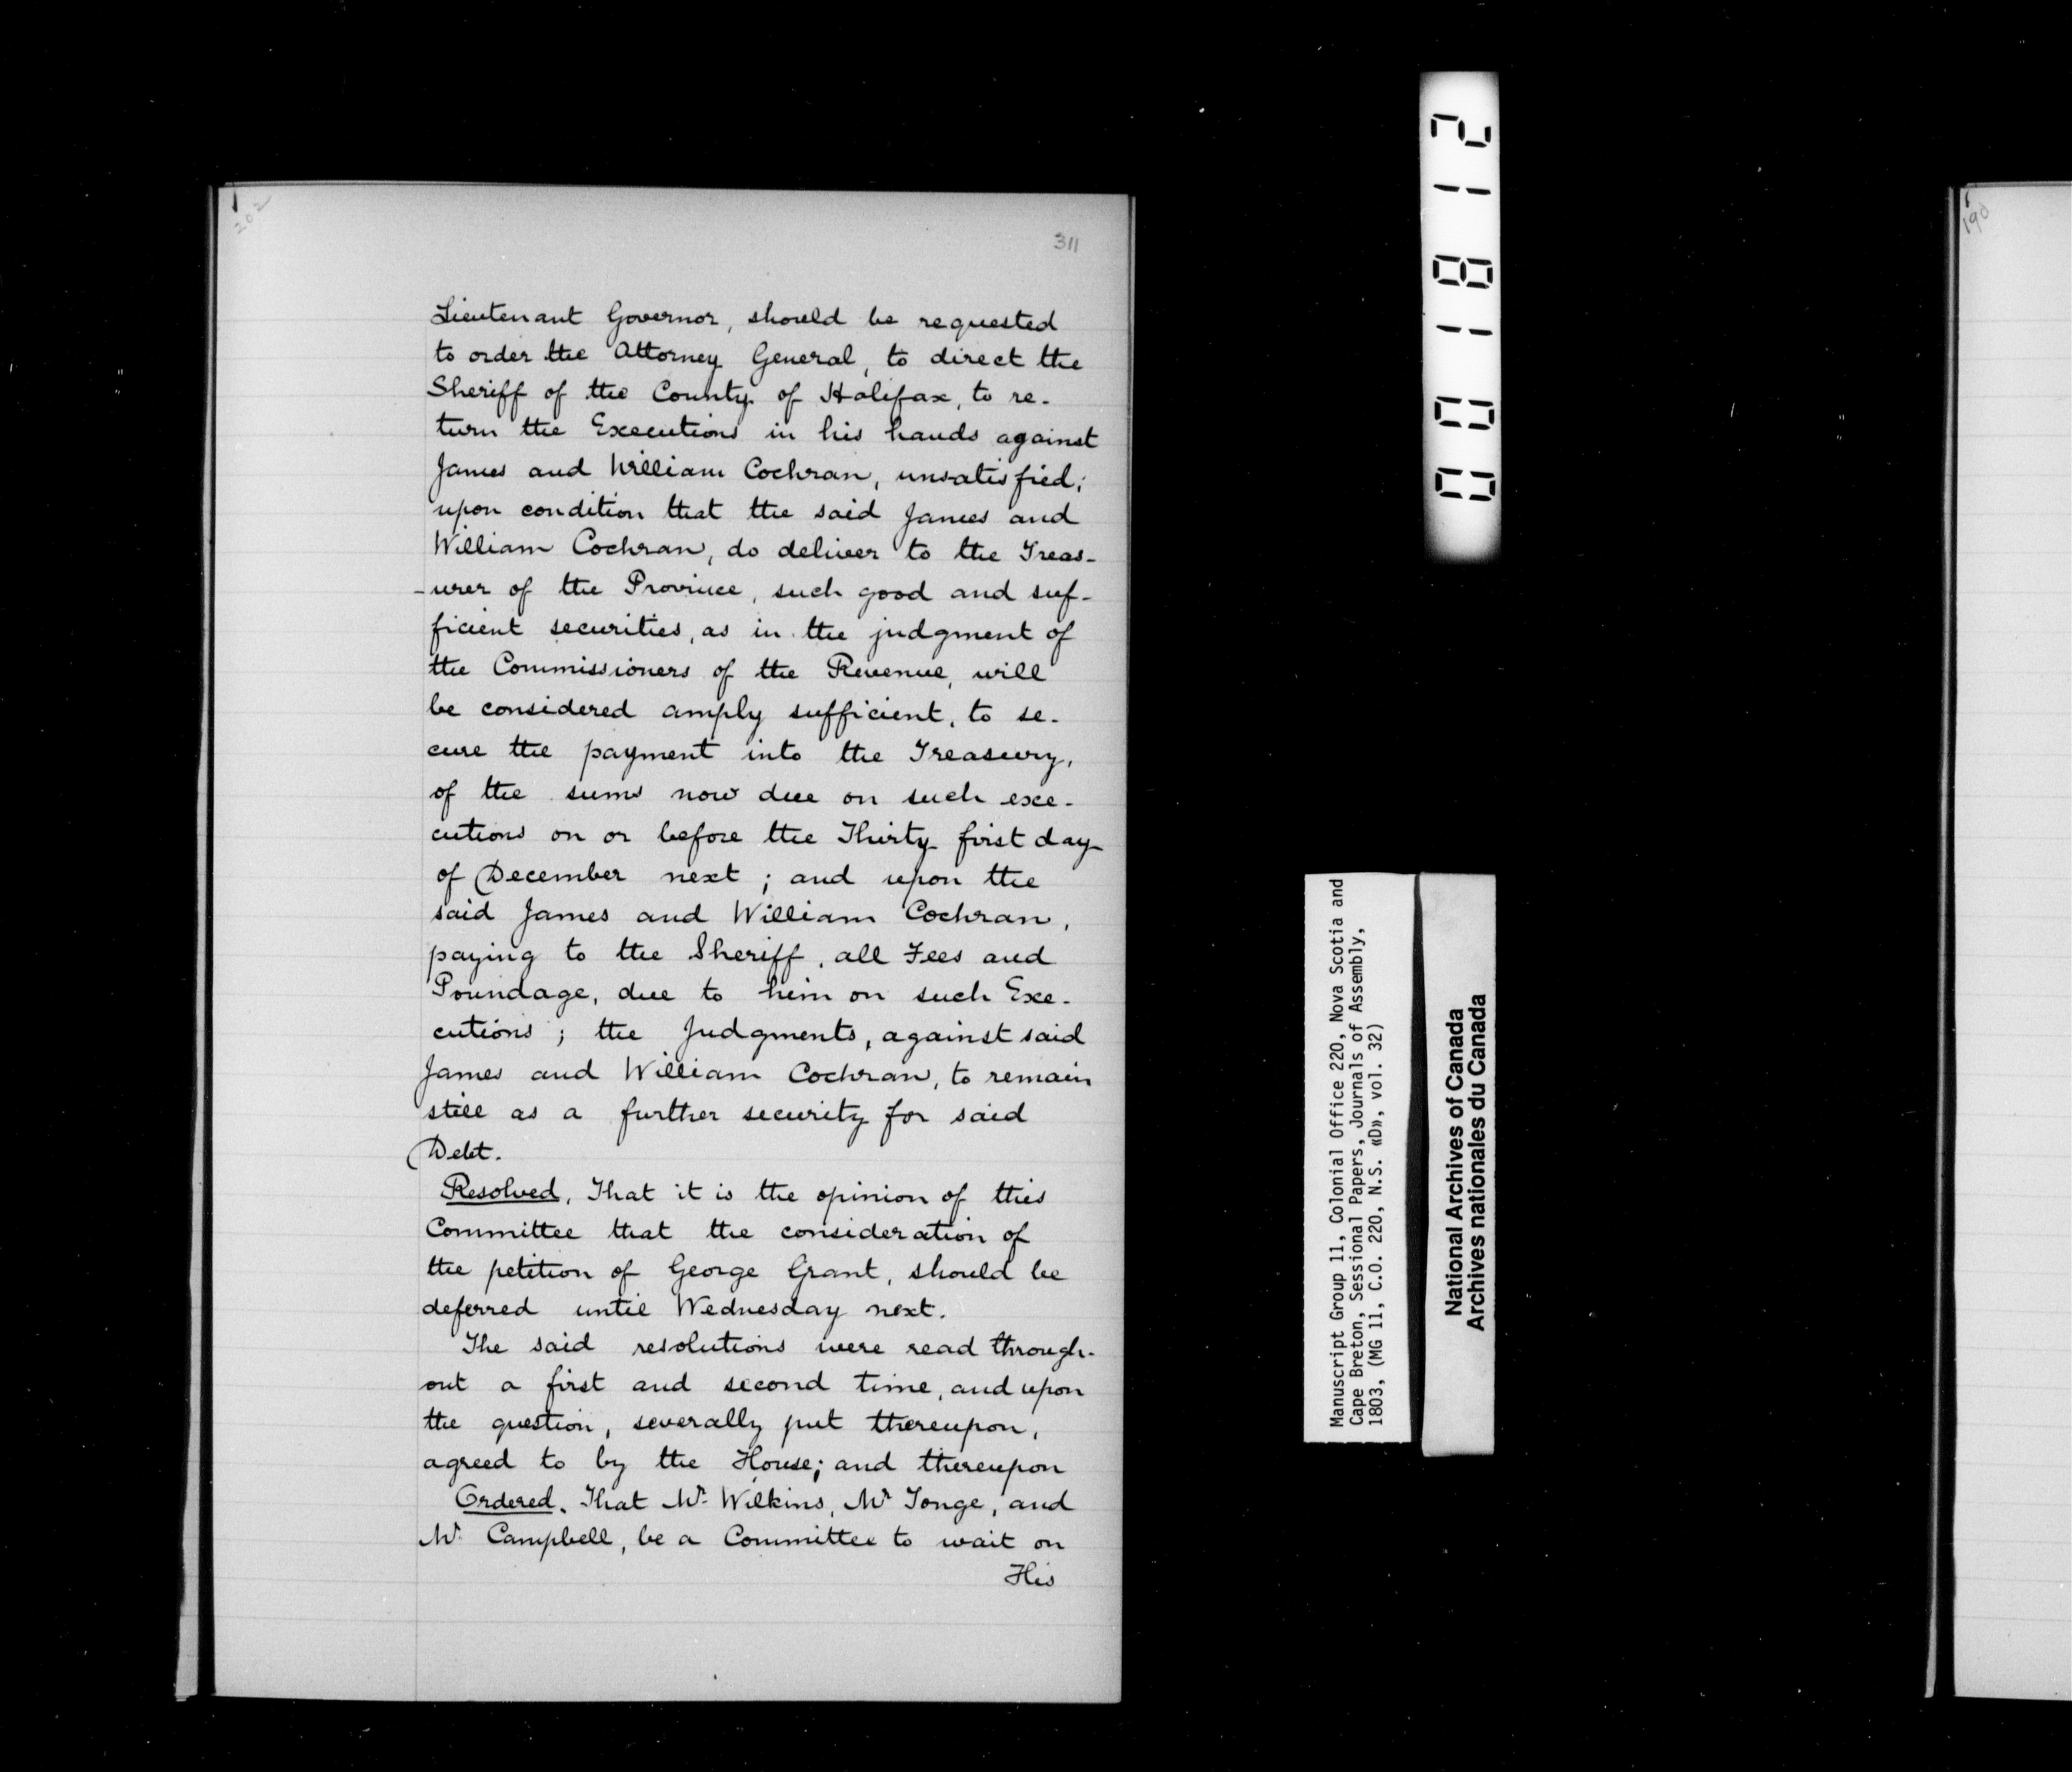 202
311
Lieutenant Governor, should be requested
to order the Attorney General, to direct the
Sheriff of the County of Halifax, to re-
turn the Executions in his hands against
James and William Cochran, unsatisfied;
upon condition that the said James and
William Cochran, do deliver to the Treas-
-urer of the Province, such good and suf-
ficient securities, as in the judgment of
the Commissioners of the Revenue, will
be considered amply sufficient, to se-
cure the payment into the Treasury,
of the sums now due on such exe-
cutions on or before the Thirty first day
of December next; and upon the
said James and William Cochran,
paying to the Sheriff, all Fees and
Poundage, due to him on such Exe-
cutions; the Judgments, against said
James and William Cochran, to remain
still as a further security for said
Debt.
Resolved, That it is the opinion of this
Committee that the consideration of
the petition of George Grant, should be
deferred until Wednesday next.
The said resolutions were read through-
out a first and second time, and upon
the question, severally put thereupon,
agreed to by the House; and thereupon
Ordered. That Mr. Wilkins, Mr Tonge, and
Mr. Campbell, be a Committee to wait on
His
001812
Manuscript Group 11, Colonial Office 220, Nova Scotia and
Cape Breton, Sessional Papers, Journals of Assembly,
1803, (MG 11, C.O. 220, N.S. «D», vol. 32)
National Archives of Canada
Archives nationales du Canada